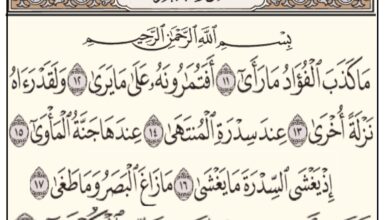 بِسْمِ اللَّهِ الرَّحْمَٰنِ الرَّحِيمِ
مَا كَذَبَ الْفُؤَادُ مَا رَأَىٰ ١١ أَفَتُمَارُونَهُ عَلَىٰ مَا يَرَىٰ ١٢ وَلَقَدْ رَءَاهُ
نَزْلَةً أُخْرَىٰ ١٣ عِندَ سِدْرَةِ الْمُنتَهَىٰ ١٤ عِندَهَا جَنَّةُ الْمَأْوَىٰ ١٥
إِذْ يَغْشَى السِّدْرَةَ مَا يَغْشَىٰ ١٦ مَا زَاغَ الْبَصَرُ وَمَا طَغَىٰ ١٧